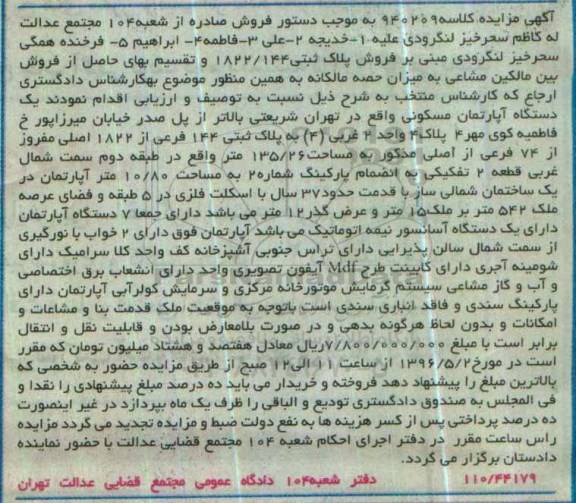 آگهی مزایده کلاسه۹۴۰۲۰۹ به موجب دستور فروش صادره از شعبه۱۰۴ مجتمع عدالت
له کاظم سحرخیز لنگرودی علیه ۱-خدیجه ۲-علی ۳-فاطمه۴- ابراهیم ۵- فرخنده همگی
سحرخیز لنگرودی مبنی بر فروش پلاک ثبتی۱۸۲۲/۱۴۴ و تقسیم بهای حاصل از فروش
بین مالکین مشاعی به میزان حصه مالکانه به همین منظور موضوع بهکارشناس دادگستری
ارجاع که کارشناس منتخب به شرح ذیل نسبت به توصیف و ارزیابی اقدام نمودند یک
دستگاه آپارتمان مسکونی واقع در تهران شریعتی بالاتر از پل صدر خیابان میرزاپور خ
فاطمیه کوی مهر۴ پلاک۴ واحد۴ غربی (۴) به پلاک ثبتی ۱۴۴ فرعی از ۱۸۲۲ اصلی مفروز
از ۷۴ فرعی از اصلی مذکور به مساحت۱۳۵/۲۶ متر واقع در طبقه دوم سمت شمال
غربی قطعه ۲ تفکیکی به انضمام پارکینگ شماره۲ به مساحت ۱۰/۸۰ متر آپارتمان در
یک ساختمان شمالی ساز با قدمت حدود۳۷ سال با اسکلت فلزی در ۵ طبقه و فضای عرصه
ملک ۵۴۲ متر بر ملک۱۵ متر و عرض گذر۱۲ متر می باشد دارای جمعا ۷ دستگاه آپارتمان
دارای یک دستگاه آسانسور نیمه اتوماتیک می باشد آپارتمان فوق دارای ۲ خواب با نورگیری
از سمت شمال سالن پذیرایی دارای تراس جنوبی آشپزخانه کف واحد کلا سرامیک دارای
شومینه آجری دارای کابینت طرح Mdf آیفون تصویری واحد دارای انشعاب برق اختصاصی
و آب و گاز مشاعی سیستم گرمایش موتورخانه مرکزی و سرمایش کولرآبی آپارتمان دارای
پارکینگ سندی و فاقد انباری سندی است باتوجه به موقعیت ملک قدمت بنا و مشاعات و
امکانات و بدون لحاظ هرگونه بدهی و در صورت بلامعارض بودن و قابلیت نقل و انتقال
برابر است با مبلغ ۷/۸۰۰/۰۰۰/۰۰۰ریال معادل هفتصد و هشتاد میلیون تومان که مقرر
است در مورخ۱۳۹۶/۵/۲ از ساعت ۱۱ الی۱۲ صبح از طریق مزایده حضور به شخصی که
بالاترین مبلغ را پیشنهاد دهد فروخته و خریدار می باید ده درصد مبلغ پیشنهادی را نقدا و
فی المجلس به صندوق دادگستری تودیع و الباقی را ظرف یک ماه بپردازد در غیر اینصورت
ده درصد پرداختی پس از کسر هزینه ها به نفع دولت ضبط و مزایده تجدید می گردد مزایده
راس ساعت مقرر در دفتر اجرای احکام شعبه ۱۰۴ مجتمع قضایی عدالت با حضور نماینده
دادستان برگزار می گردد.
۱۱۰/۴۴۱۷۹ دفتر شعبه۱۰۴ دادگاه عمومی مجتمع قضایی عدالت تهران